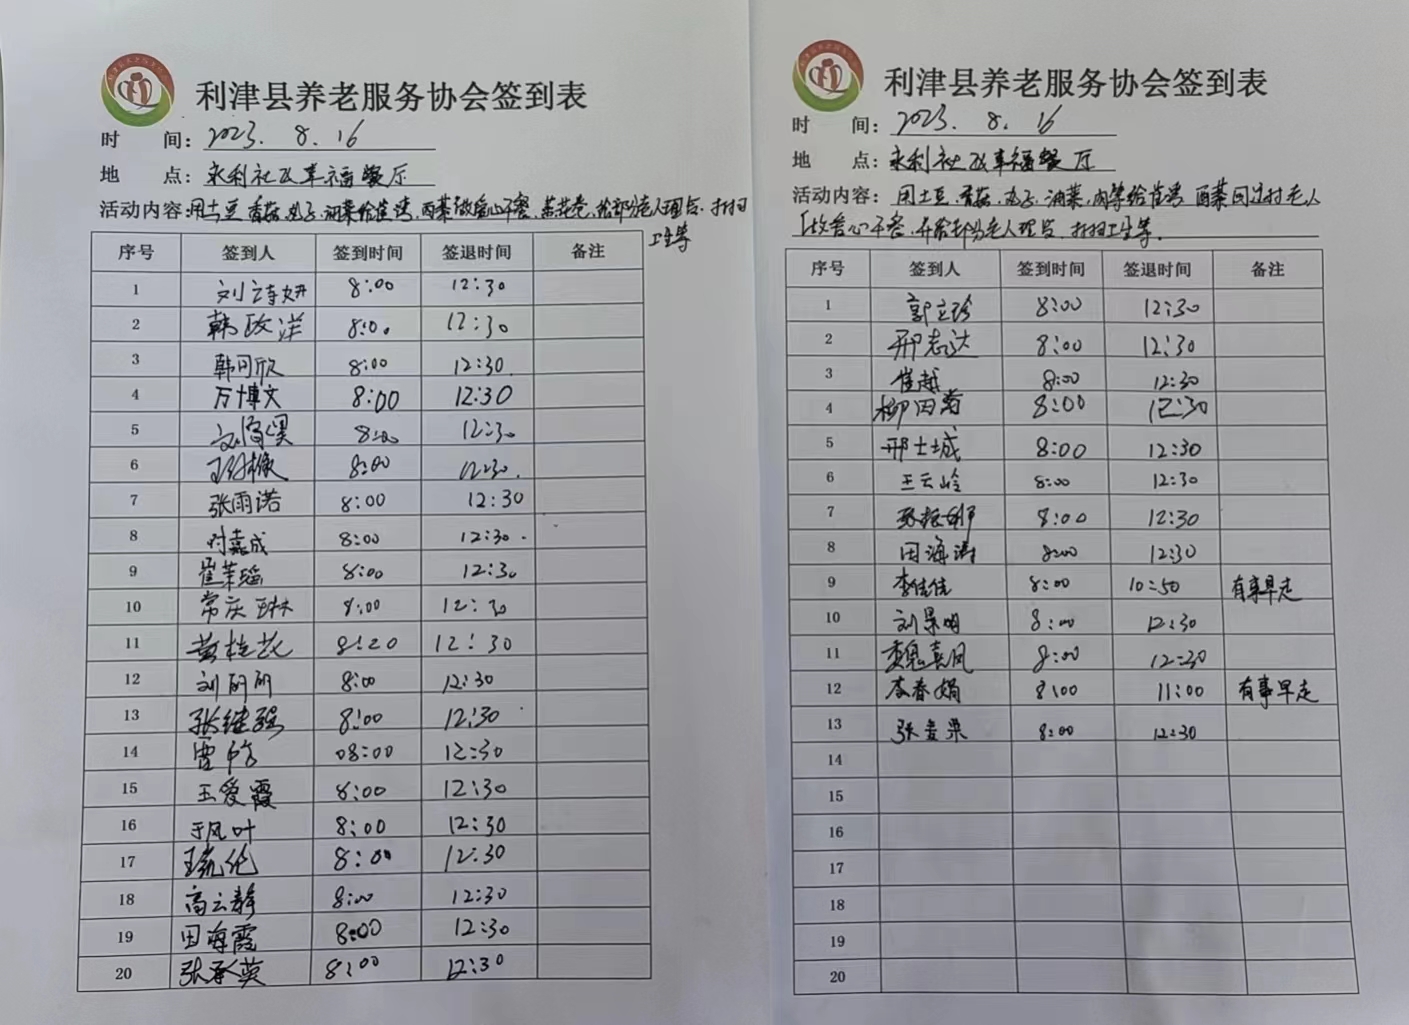 利津县养老服务协会签到表
时 间: 2023. 8. 16
地 点: 永利社区幸福餐厅
活动内容: 用土豆 香菇 丸子 油菜给 西葫 做爱心午餐, 给部分老人理发, 打扫
卫生等
序号 签到人 签到时间 签退时间 备注
1 刘诗妍 8:00 12:30
2 韩政洋 8:00 12:30
3 韩同欣 8:00 12:30
4 万博文 8:00 12:30
5 8:00 12:30
6 8:00 12:30
7 张雨诺 8:00 12:30
8 时嘉成 8:00 12:30
9 8:00 12:30
10 常庆琳 8:00 12:30
11 黄桂花 8:20 12:30
12 8:00 12:30
13 张继强 8:00 12:30
14 08:00 12:30
15 王爱霞 8:00 12:30
16 于风叶 8:00 12:30
17 8:00 12:30
18 高云静 8:00 12:30
19 田海霞 8:00 12:30
20 张承英 8:00 12:30
利津县养老服务协会签到表
时 间: 2023. 8. 16
地 点: 永利社区幸福餐厅
活动内容: 用土豆, 香菇, 丸子, 油菜, 肉等给 老人
做爱心午餐, 并给部分老人理发, 打扫卫生等.
序号 签到人 签到时间 签退时间 备注
1 郭立珍 8:00 12:30
2 邢志达 8:00 12:30
3 崔越 8:00 12:30
4 8:00 12:30
5 邢士城 8:00 12:30
6 王云岭 8:00 12:30
7 8:00 12:30
8 田海涛 8:00 12:30
9 李佳佳 8:00 10:50 有事早走
10 刘景明 8:00 12:30
11 魏真风 8:00 12:30
12 李春娟 8:00 11:00 有事早走
13 8:00 12:30
14
15
16
17
18
19
20